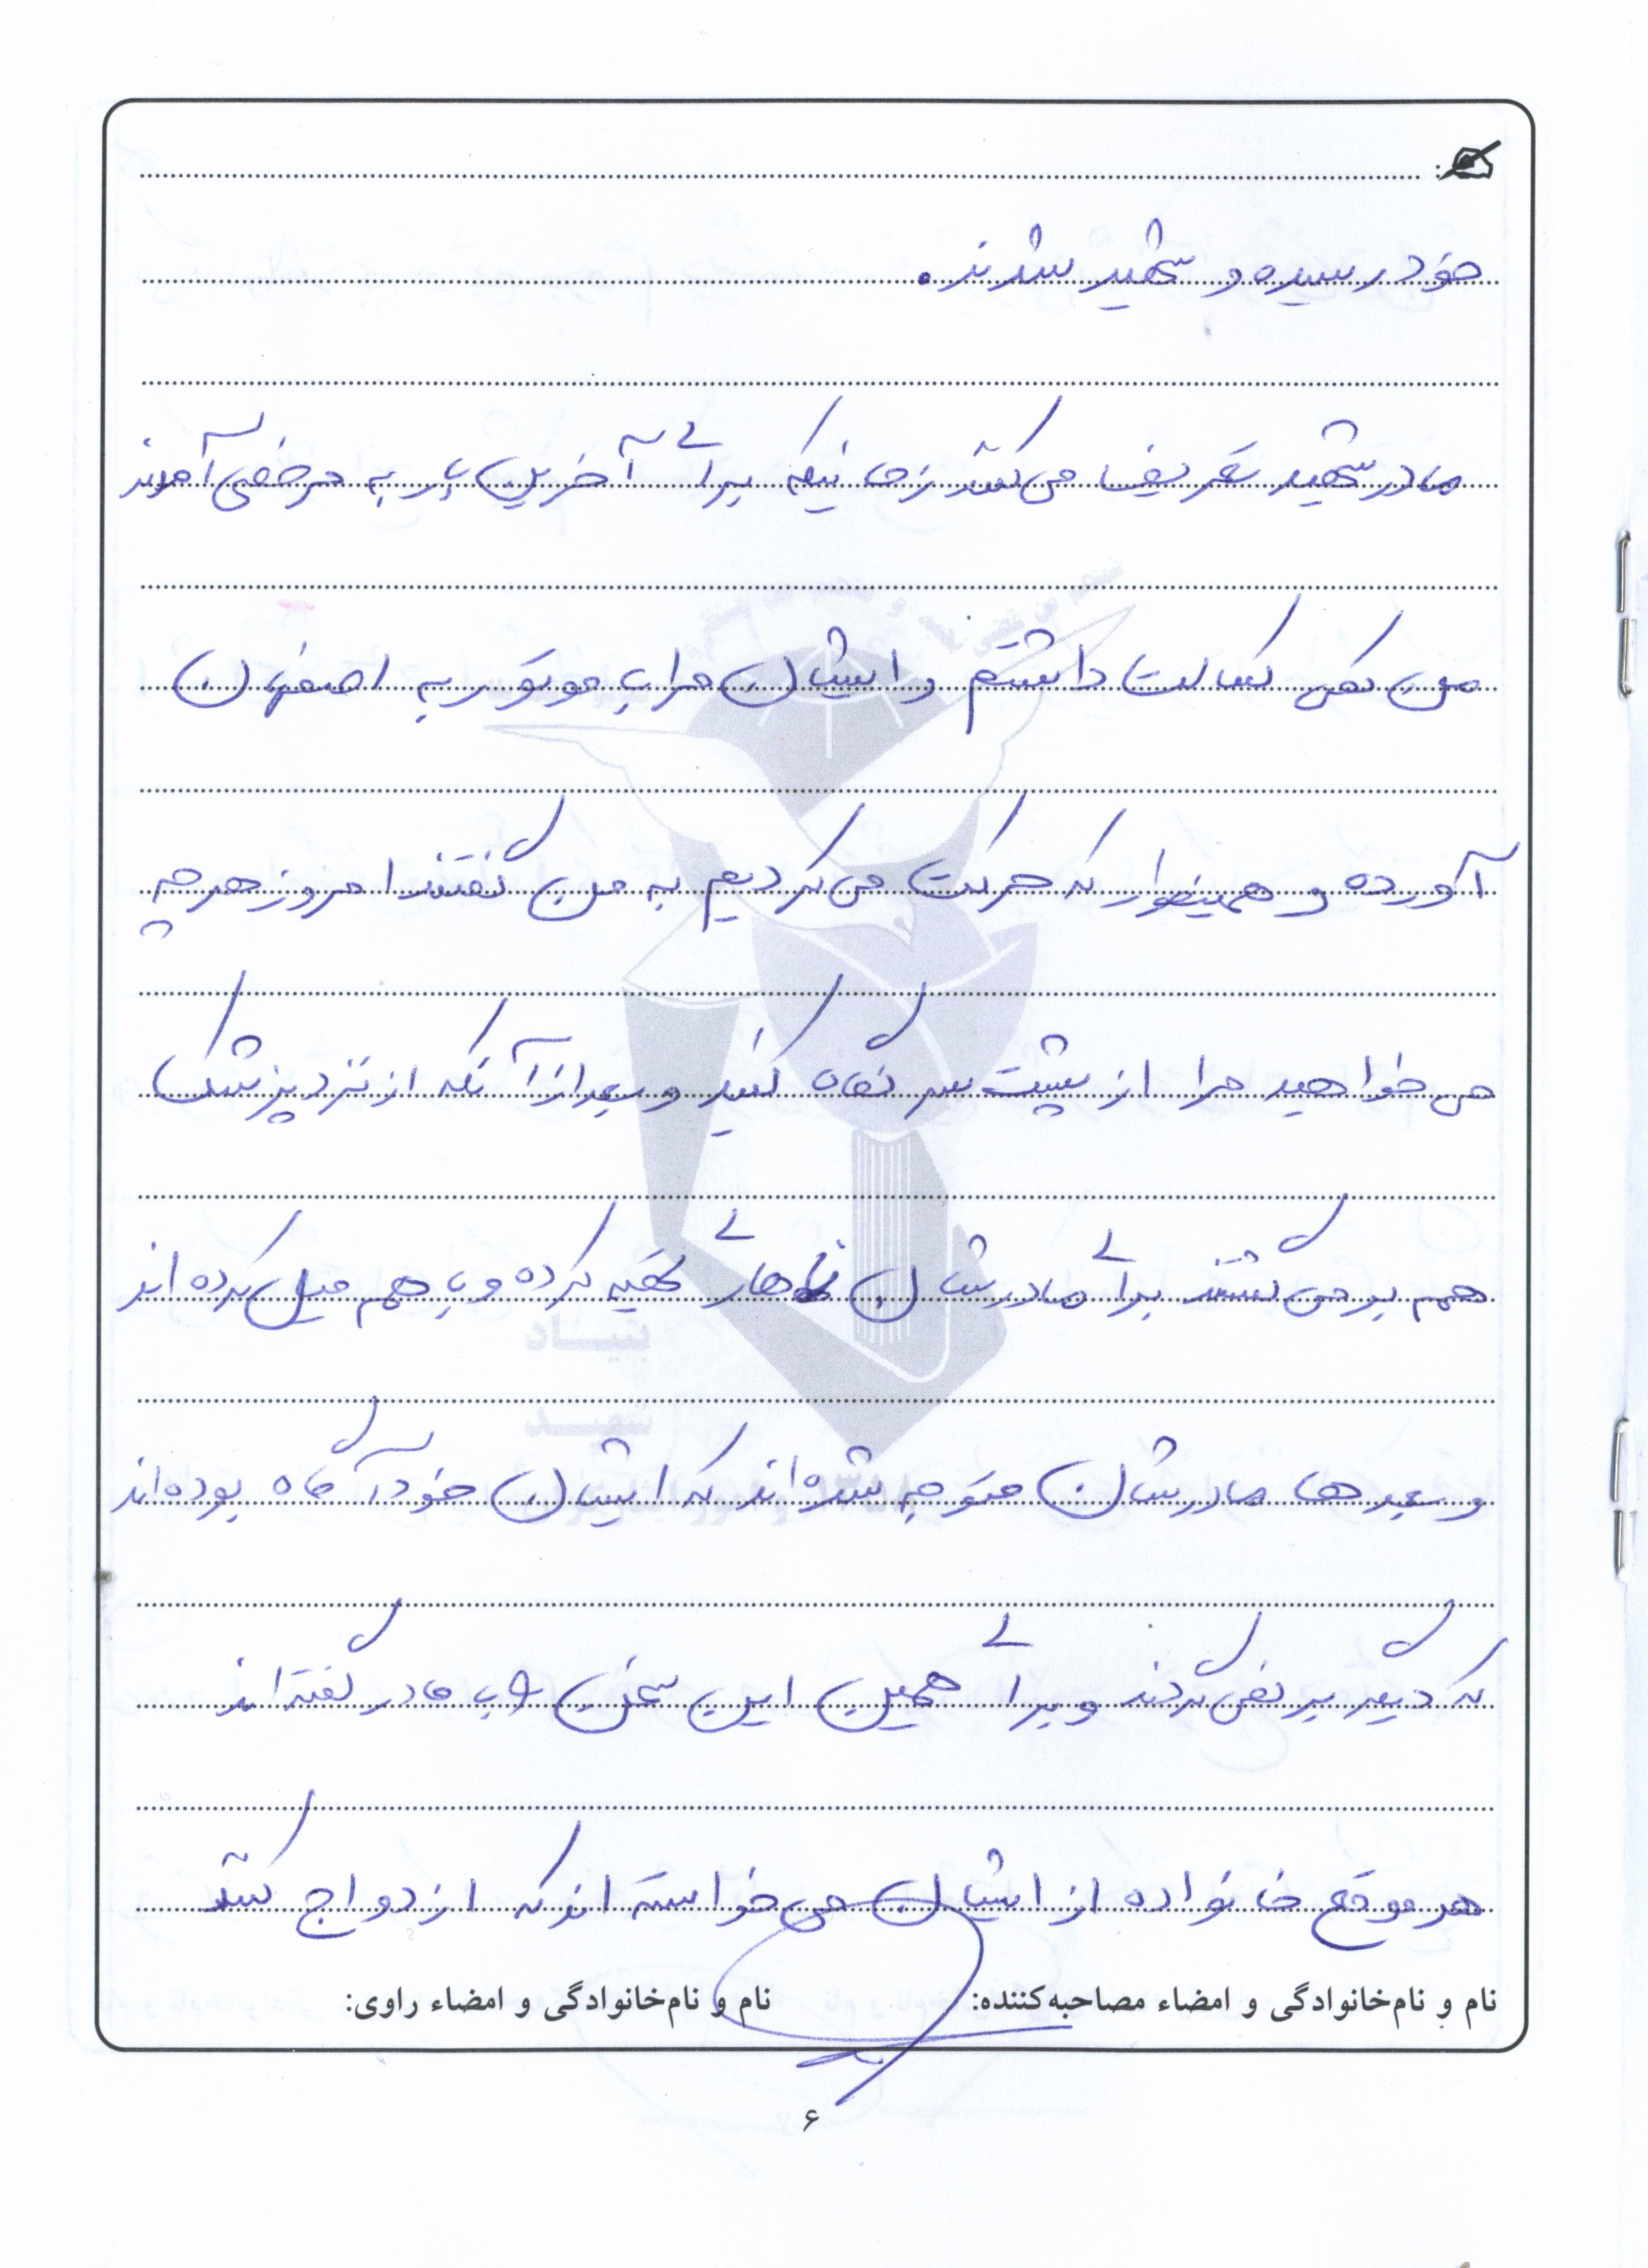 خود رسیده و شهید شدند.
مادر شهید تعریف می کنند زمانیکه برای آخرین بار به مرخصی آمدند
من کمی کسالت داشتم و ایشان مرا با موتور به اصفهان
آورده و همینطور که حرکت می کردیم به من گفتند امروز هر چه
می خواهید مرا از پشت سر نگاه کنید و بعد از آنکه از نزد پزشک
هم بر می گشتند برای مادرشان ناهاری تهیه کرده و با هم میل کرده اند
و بعدها مادرشان متوجه شده اند که ایشان خود آگاه بوده اند
که دیگر بر نمی گردند و برای همین این سخن را با مادر گفته اند
هر موقع خانواده از ایشان می خواسته اند که ازدواج کنند
نام و نام‌خانوادگی و امضاء مصاحبه‌کننده: نام و نام‌خانوادگی و امضاء راوی:
۶